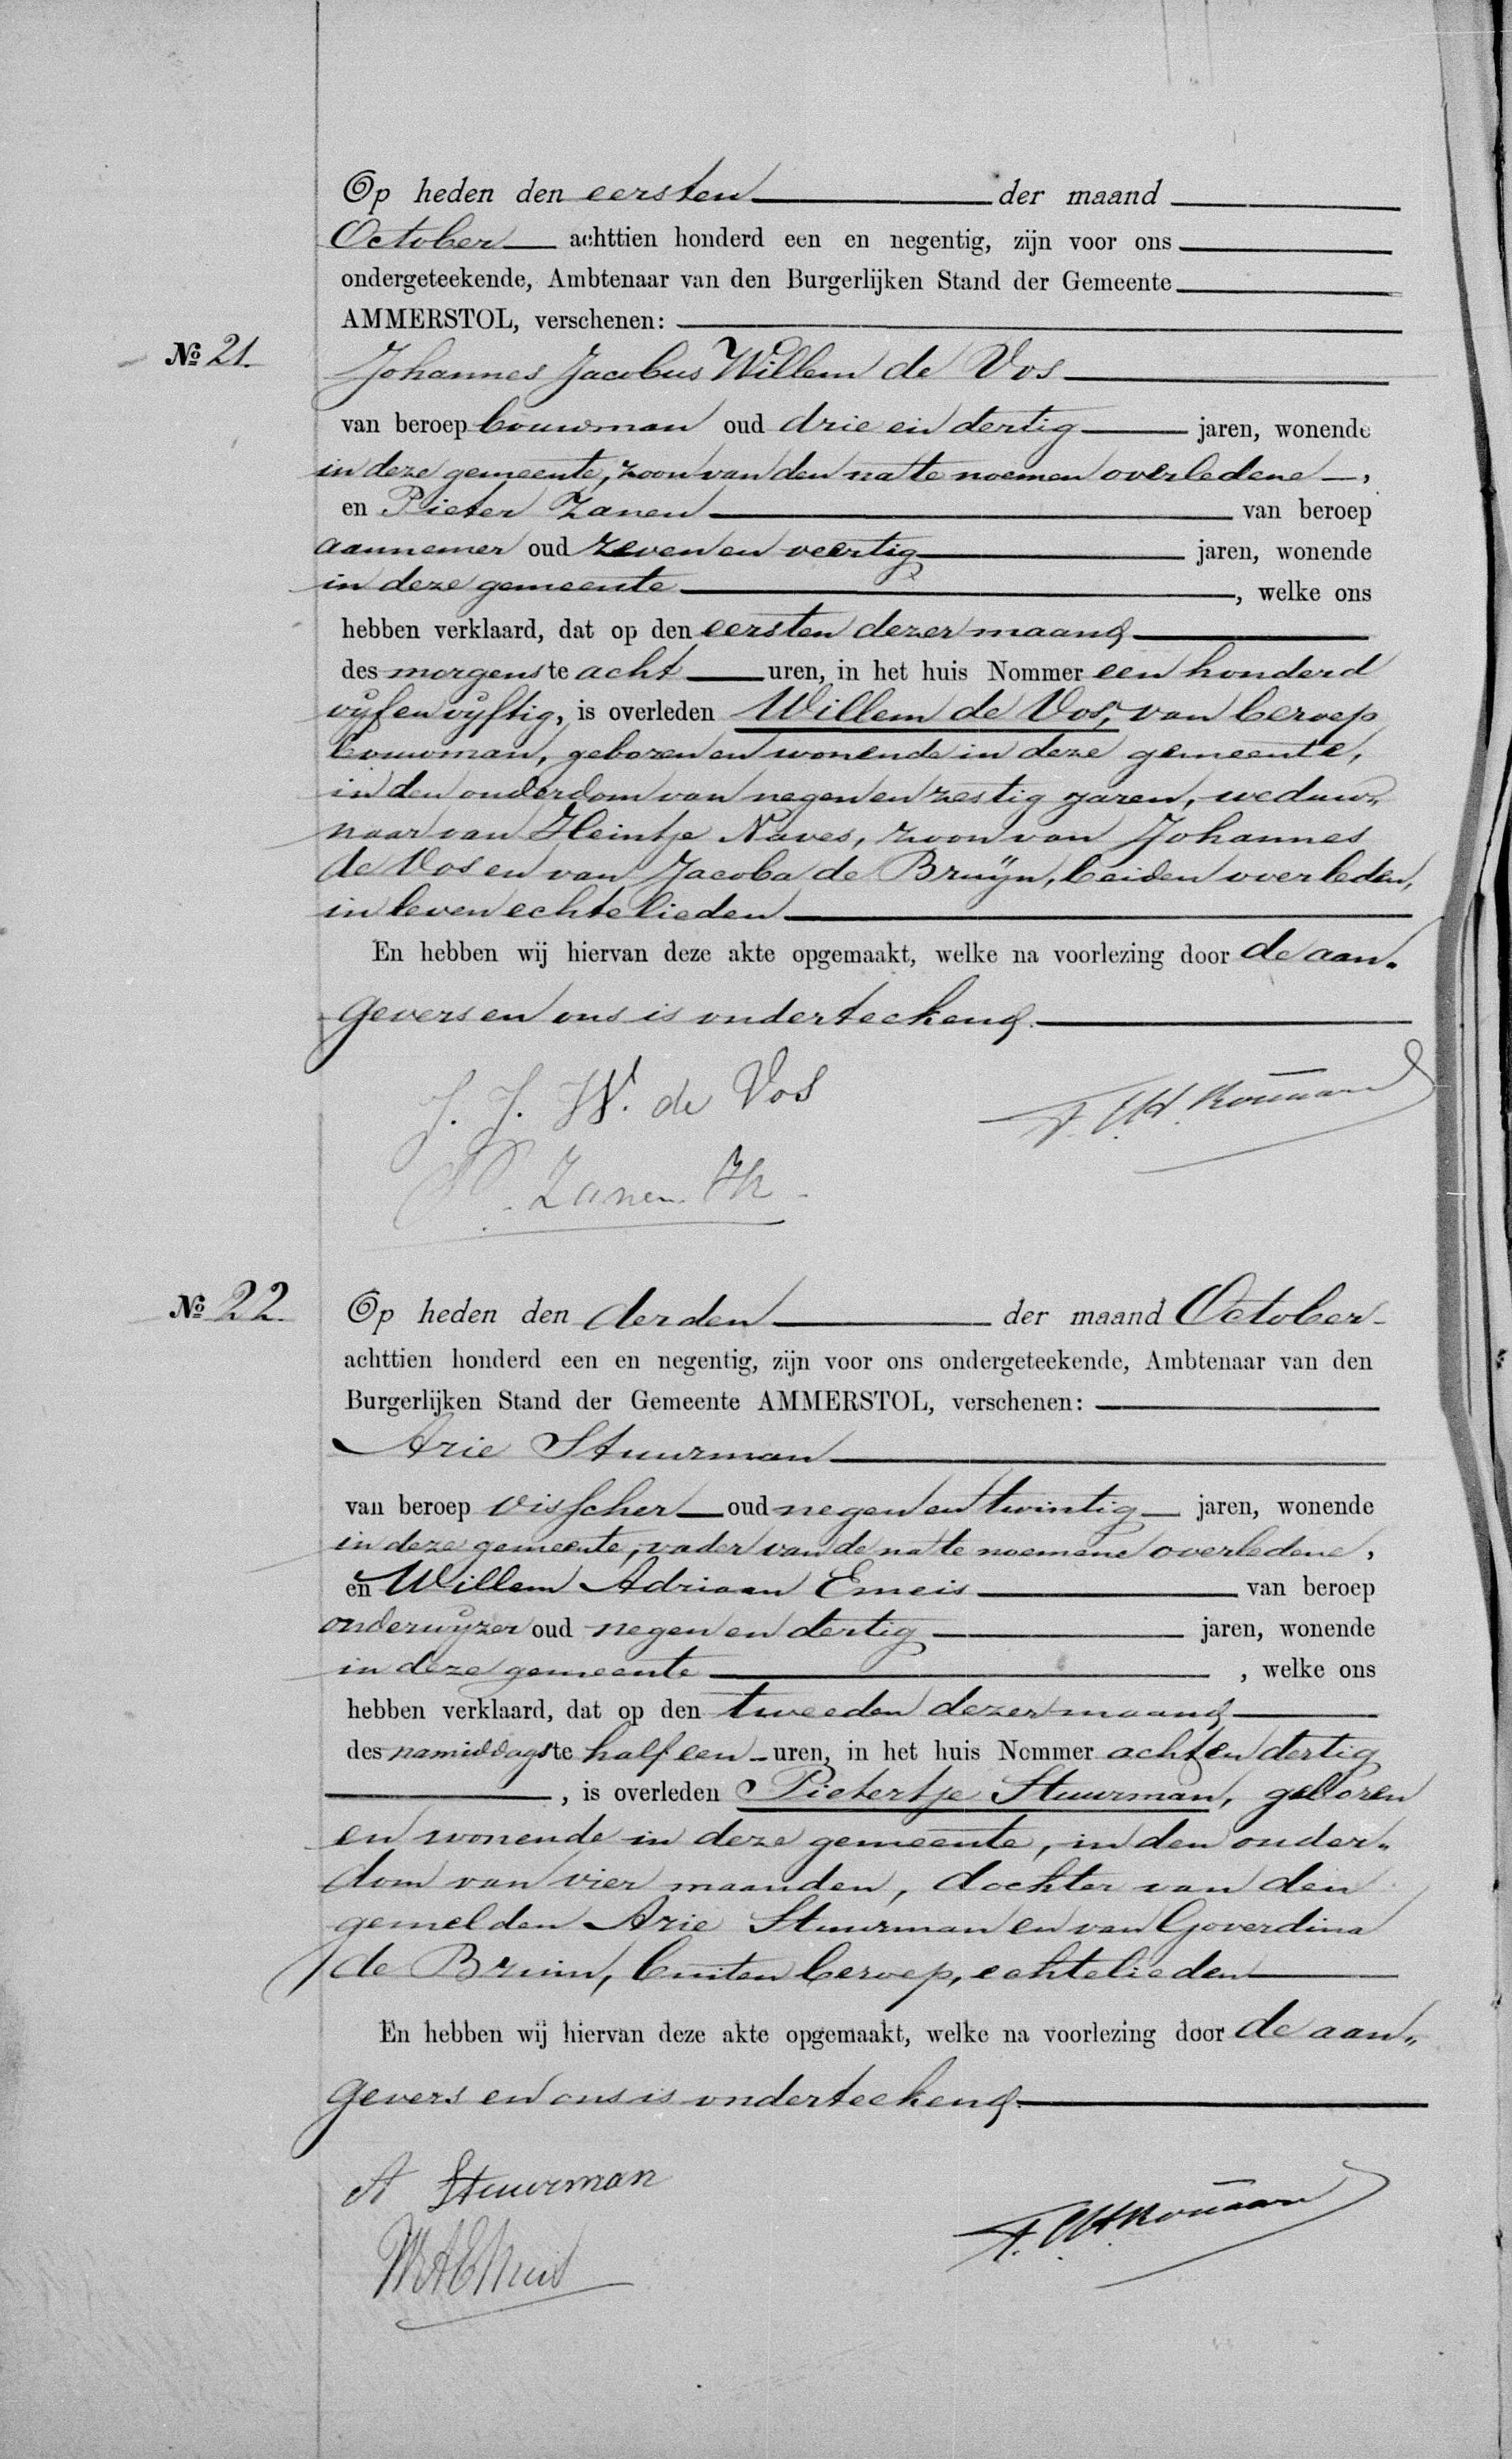 Op heden den eersten der maand
October achttien honderd een en negentig, zijn voor ons
ondergeteekende, Ambtenaar van den Burgerlijken Stand der Gemeente
AMMERSTOL, verschenen:
No 21.
Johannes Jacobus Willem de Vos
van beroep bouwman oud drie en dertig jaren, wonende
in deze gemeente, zoon van den na te noemen overledene,
en Pieter Zanen van beroep
aannemer oud zeven en veertig jaren, wonende
in deze gemeente, welke ons
hebben verklaard, dat op den eersten dezer maand
des morgens te acht uren, in het huis Nommer een honderd
vyf en vyftig, is overleden Willem de Vos, van beroep
bouwman, geboren en wonende in deze gemeente,
in den ouderdom van negen en zestig jaren, weduw„
naar van Heintje Naves, zoon van Johannes
de Vos en van Jacoba de Bruijn, beiden overleden,
in leven echtelieden
En hebben wij hiervan deze akte opgemaakt, welke na voorlezing door de aan„
gevers en ons is onderteekend.
J. J. W. de Vos
P. Zanen
No 22.
Op heden den derden der maand October
achttien honderd een en negentig, zijn voor ons ondergeteekende, Ambtenaar van den
Burgerlijken Stand der Gemeente AMMERSTOL, verschenen:
Arie Stuurman
van beroep visscher oud negen en twintig jaren, wonende
in deze gemeente, vader van de na te noemene overledene,
en Willem Adriaan Emeis van beroep
onderwyzer oud negen en dertig jaren, wonende
in deze gemeente, welke ons
hebben verklaard, dat op den tweeden dezer maand
des namiddags te half een uren, in het huis Nommer acht en dertig
, is overleden Pietertje Stuurman, geboren
en wonende in deze gemeente, in den ouder„
dom van vier maanden, dochter van den
gemelden Arie Stuurman en van Goverdina
de Bruin, buiten beroep, echtelieden
En hebben wij hiervan deze akte opgemaakt, welke na voorlezing door de aan„
gevers en ons is onderteekend.
A Stuurman
WAEmeis